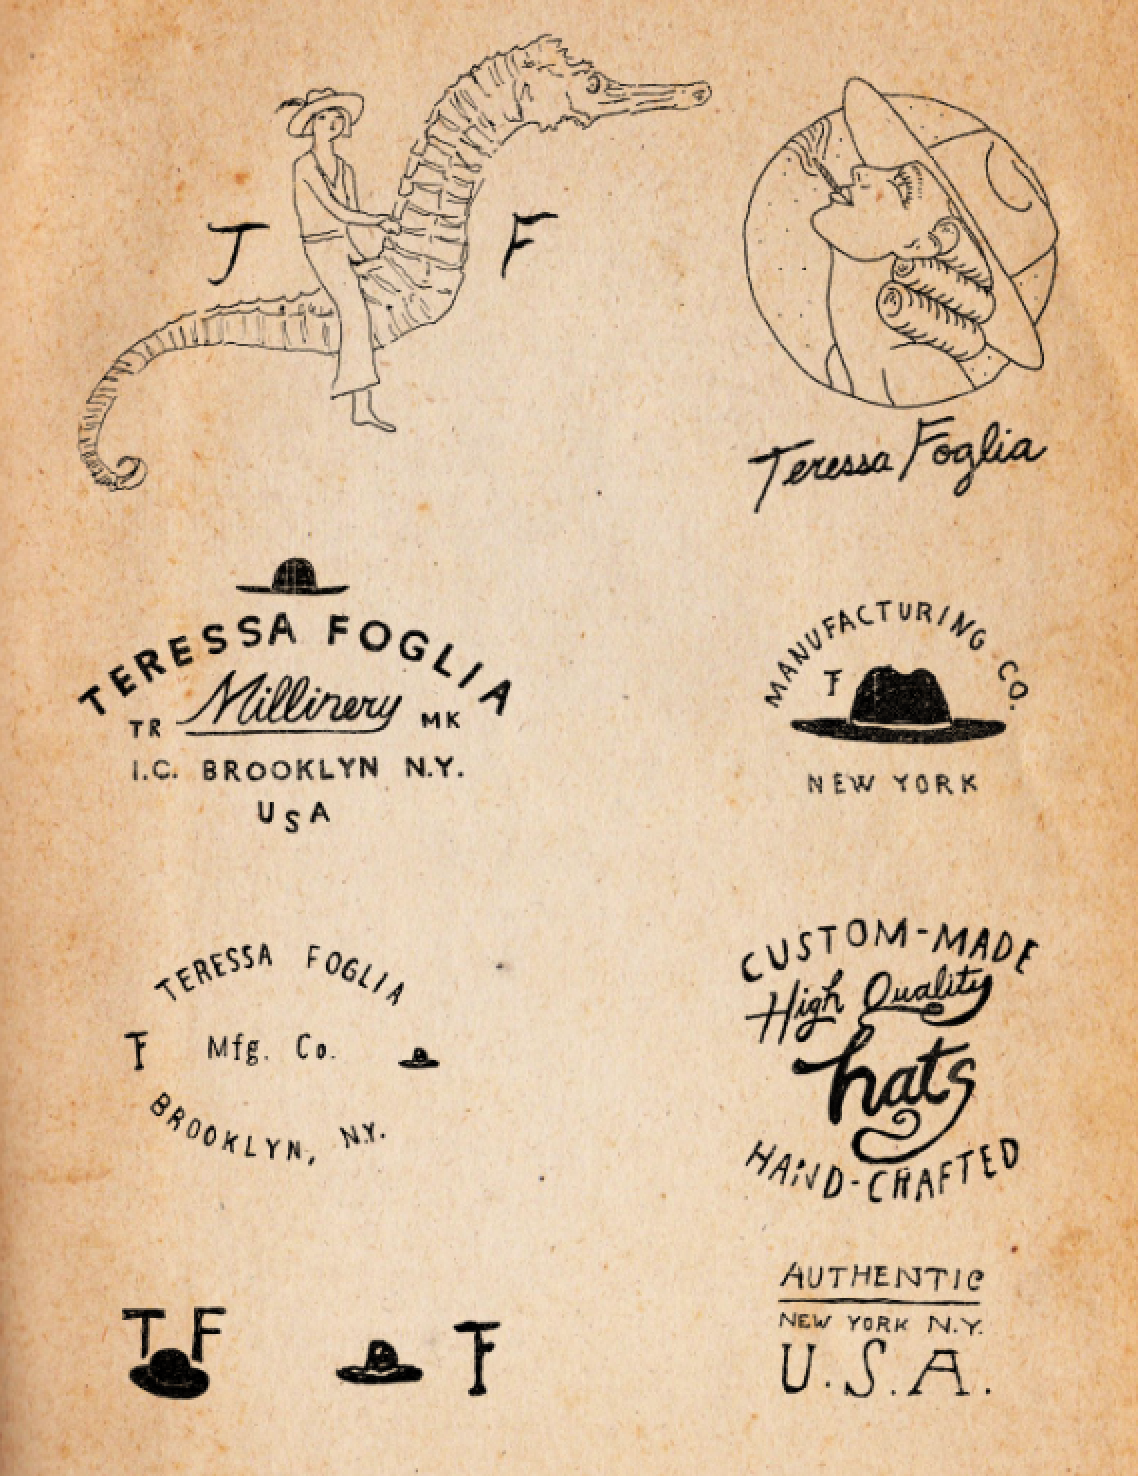 T F
Teressa Foglia
TERESSA FOGLIA
Millinery
TR MK
I.C. BROOKLYN N.Y.
USA
MANUFACTURING CO.
TF
NEW YORK
TERESSA FOGLIA
TF Mfg. Co.
BROOKLYN, N.Y.
CUSTOM-MADE
High Quality
hats
HAND-CRAFTED
T F
TF
AUTHENTIC
NEW YORK N.Y.
U.S.A.